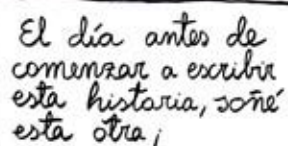 El día antes de
comenzar a escribir
esta historia, soñé
esta otra;